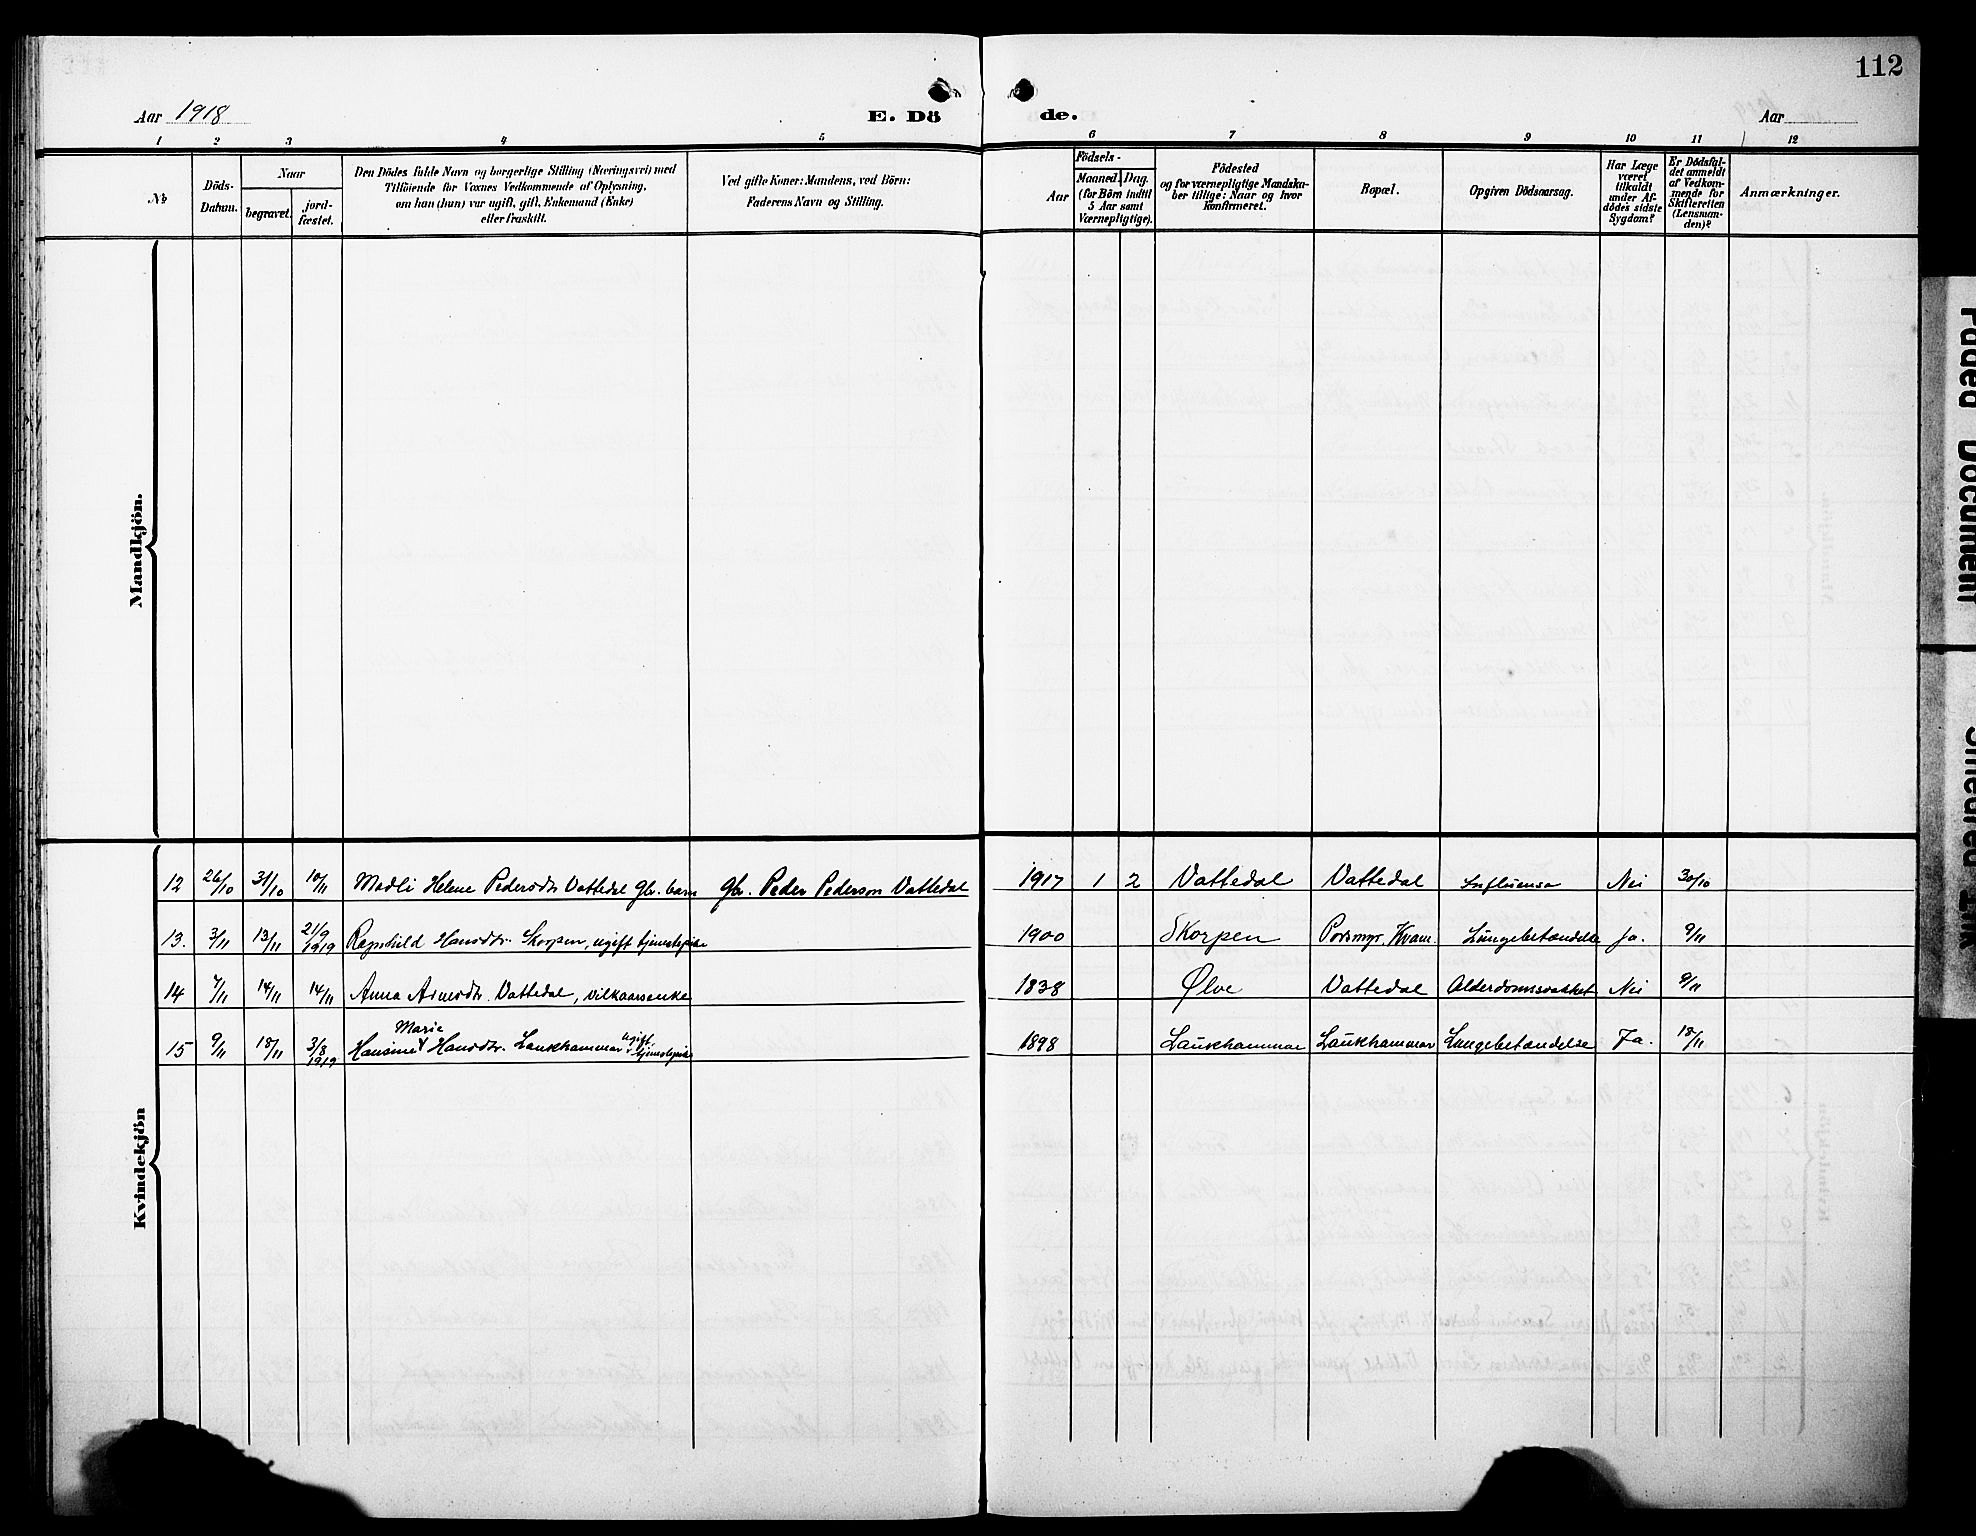 112
Aar 1918
E. Dö
de.
Aar
1 2 3 4 5 6 7 8 9 10 11 12
No
Döds-
Datum.
Naar
begravet.
jord-
fæstet.
Den Dödes fulde Navn og borgerlige Stilling (Næringsvei) med
Tilföiende for Voxnes Vedkommende af Oplysning,
om han (hun) var ugift, gift, Enkemand (Enke)
eller fraskilt.
Ved gifte Koner: Mandens, ved Börn:
Faderens Navn og Stilling.
Födsels-
Aar
Maaned. Dag.
(for Börn indtil
5 Aar samt
Værnepligtige).
Födested
og for værnepligtige Mandska-
ber tillige: Naar og hvor
konfirmeret.
Bopæl.
Opgiven Dödsaarsag.
Har Læge
været
tilkaldt
under Af-
dödes sidste
Sygdom?
Er Dödsfal-
det anmeldt
af Vedkom-
mende for
Skifteretten
(Lensman-
den)?
Anmærkninger.
Mandkjön.
Kvindekjön
12 26/10 31/10 10/11 Modli Helene Pedersdtr Vattedal Gbr. barn Gbr. Peder Pederson Vattedal 1917 1 2 Vattedal Vattedal Influensa Nei 30/10
13. 3/11 13/11 21/9 1919 Ragnhild Hansdtr. Skorpen, ugift tjenestepike 1900 Skorpen Kvam. Lungebetændelse Ja. 9/11
14 7/11 14/11 14/11 Anna Arnesdtr. Vattedal, vilkaarsenke 1838 Ølve Vattedal Alderdomssvakhet Nei 9/11
15 9/11 18/11 3/8 1919 Hansine Marie Hansdtr. Laukhammar ugift tjenestepike 1898 Laukhammar Laukhammar Lungebetændelse Ja. 18/11
Faded Document
Smeared Ink